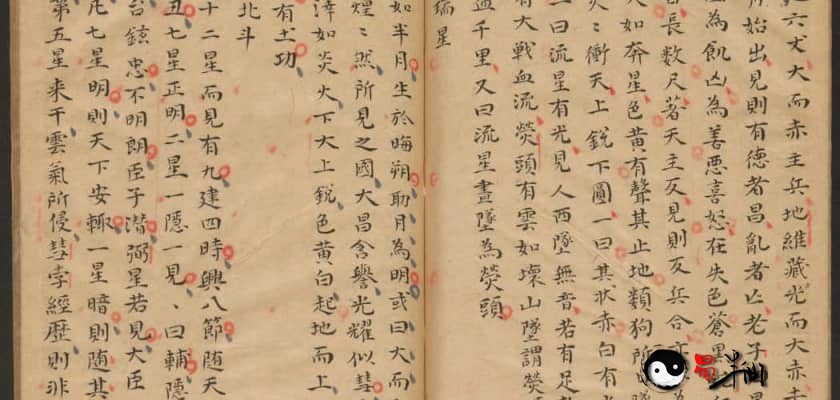 六丈大而赤主兵地維藏光而大赤
始出見則有德者昌亂者亡老子
為飢凶為善悪喜怒在失色蒼黒
長數尺著天主反見則反兵合
大如奔星色黄有聲其止地類狗所墜
火〻衝天上鋭下圓一曰其状赤白有
曰流星有光見人西墜無音若有足
有大戰血流熒頭有雲如壊山墜謂熒
血千里又曰流星晝墜為熒頭
瑞星
如半月生於晦朔助月為明或曰大而
煌〻然所見之國大昌含譽光耀似彗
澤如炎火下大上鋭色黄白起地而上
有土功
北斗
十二星而見有九建四時興八節随天
丑七星正明二星一隠一見、曰輔隠
台鉉忠不明朗臣子潜弼星若見大臣
凡七星明則天下安輙一星暗則随其
第五星来干雲氣所侵彗孛經歴則非
易